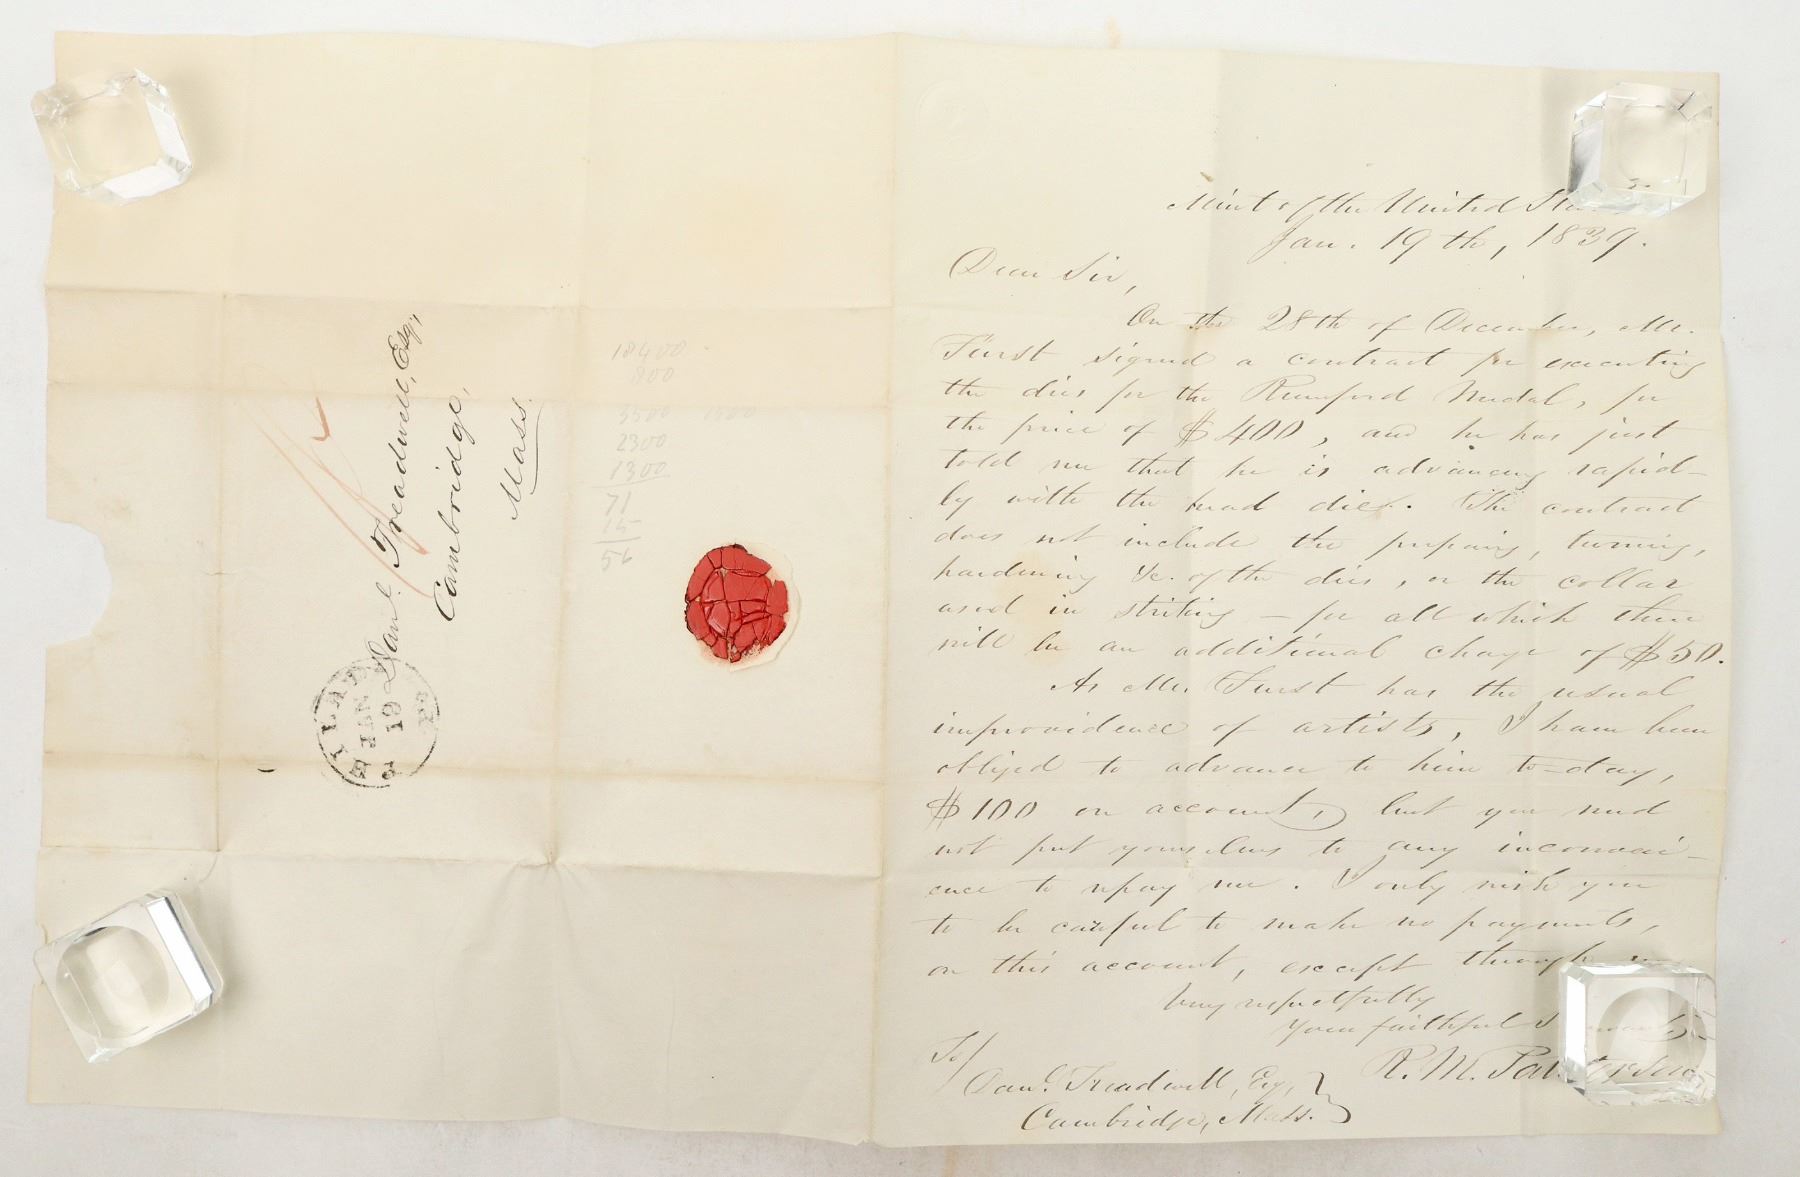 Mint of the United
Jan. 19th, 1839.
Dear Sir,
On the 28th of December, Mr.
Furst signed a contract for executing
the dies for the Rumford Medal, for
the price of $400, and he has just
told me that he is advancing rapid-
ly with the head die. The contract
does not include the preparing, turning,
hardening &c. of the dies, or the collar
used in striking – for all which there
will be an additional charge of $50.
As Mr. Furst has the usual
improvidence of artists, I have been
obliged to advance to him to-day,
$100 on account, but you need
not put yourselves to any inconveni-
ence to repay me. I only wish you
to be careful to make no payments,
on this account, except through
Very respectfully
Your faithful
R. M. Patterson
To/
Danl. Treadwell, Esq,
Cambridge, Mass.
Danl. Treadwell, Esq.,
Cambridge,
Mass.
PHILADE
JAN
19
18400
800
3500 1500
2300
1300
71
15
56